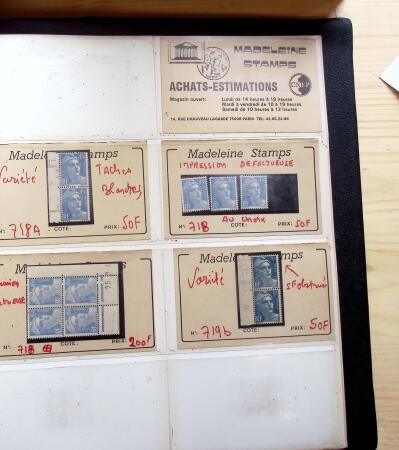 MADELEINE
STAMPS
ACHATS-ESTIMATIONS
Magasin ouvert: Lundi de 14 heures à 19 heures
Mardi à vendredi de 10 à 19 heures
Samedi de 10 heures à 12 heures
14, RUE CHAUVEAU LAGARDE 75008 PARIS TEL: 42.65.24.96
Madeleine Stamps
Variété
Taches
Blanches
N°: 718A COTE: PRIX: 50F
Madeleine Stamps
IMPRESSION DEFECTUEUSE
AU CHOIX
N°: 718 COTE: PRIX: 50F
N°: 718 COTE: PRIX: 200F
Madeleine Stamps
Variété
N°: 719b COTE: PRIX: 50F